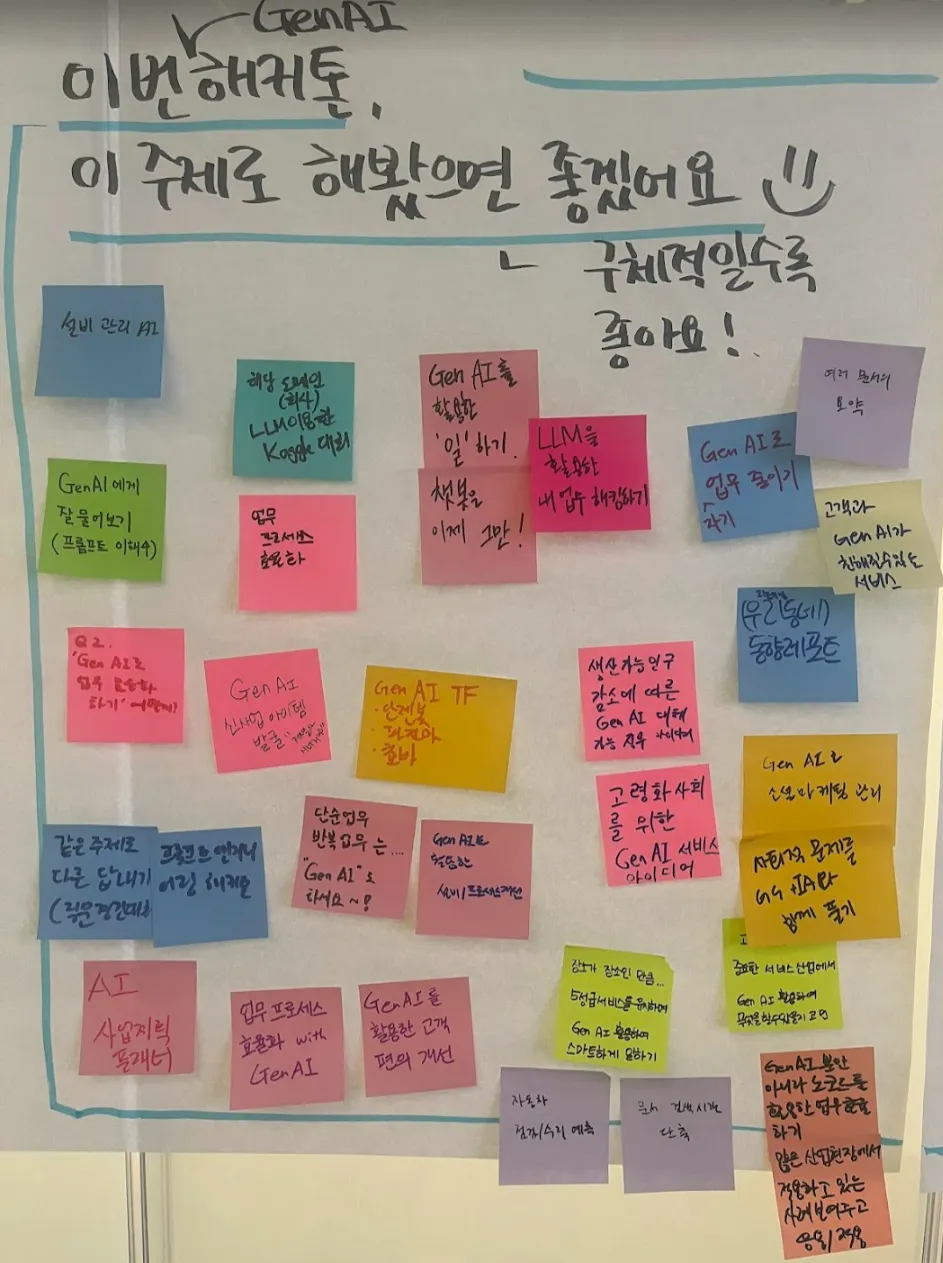 GenAI
이번 해커톤,
이 주제로 해봤으면 좋겠어요
구체적일수록
좋아요!
설비 관리 AI
해당 도메인
(회사)
LLM이용한
Kaggle 대회
Gen AI를
활용한
'일'하기.
챗봇을
이제 그만!
LLM을
활용한
내 업무 해킹하기
Gen AI로
업무 줄이기
각기
여러 문서의
요약
GenAI에게
잘 물어보기
(프롬프트 이해수)
업무
프로세스
효율화
고객과
Gen AI가
친해질수있는
서비스
(우리동네)
동향레포트
Q2.
'Gen AI로
업무 효율화
하기' 어떻게?
GenAI
신사업 아이템
발굴
Gen AI TF
생산가능인구
감소에 따른
Gen AI 대체
가능 직무
고령화 사회
를 위한
Gen AI 서비스
아이디어
Gen AI로
소셜마케팅 관리
사회적 문제를
함께 풀기
같은 주제로
다른 답내기
프롬프트 엔지니
어링 해커톤
단순업무
반복업무는...
"Gen AI"로
하세요~!
Gen AI를
활용한
설비/프로세스개선
AI
사업전략
플래너
업무 프로세스
효율화 with
GenAI
GenAI를
활용한 고객
편의 개선
장소가 장소인 만큼...
5성급서비스를 유지하며
Gen AI 활용하여
스마트하게 일하기
중요한 서비스 산업에서
Gen AI 활용하여
무엇을 할수있을지 고민
자동차
점검/수리 예측
문서 검색시간
단축
GenAI 뿐만
아니라 노코드를
활용한 업무효율
하기
많은 산업현장에서
적용하고 있는
사례 보여주고
응용/적용